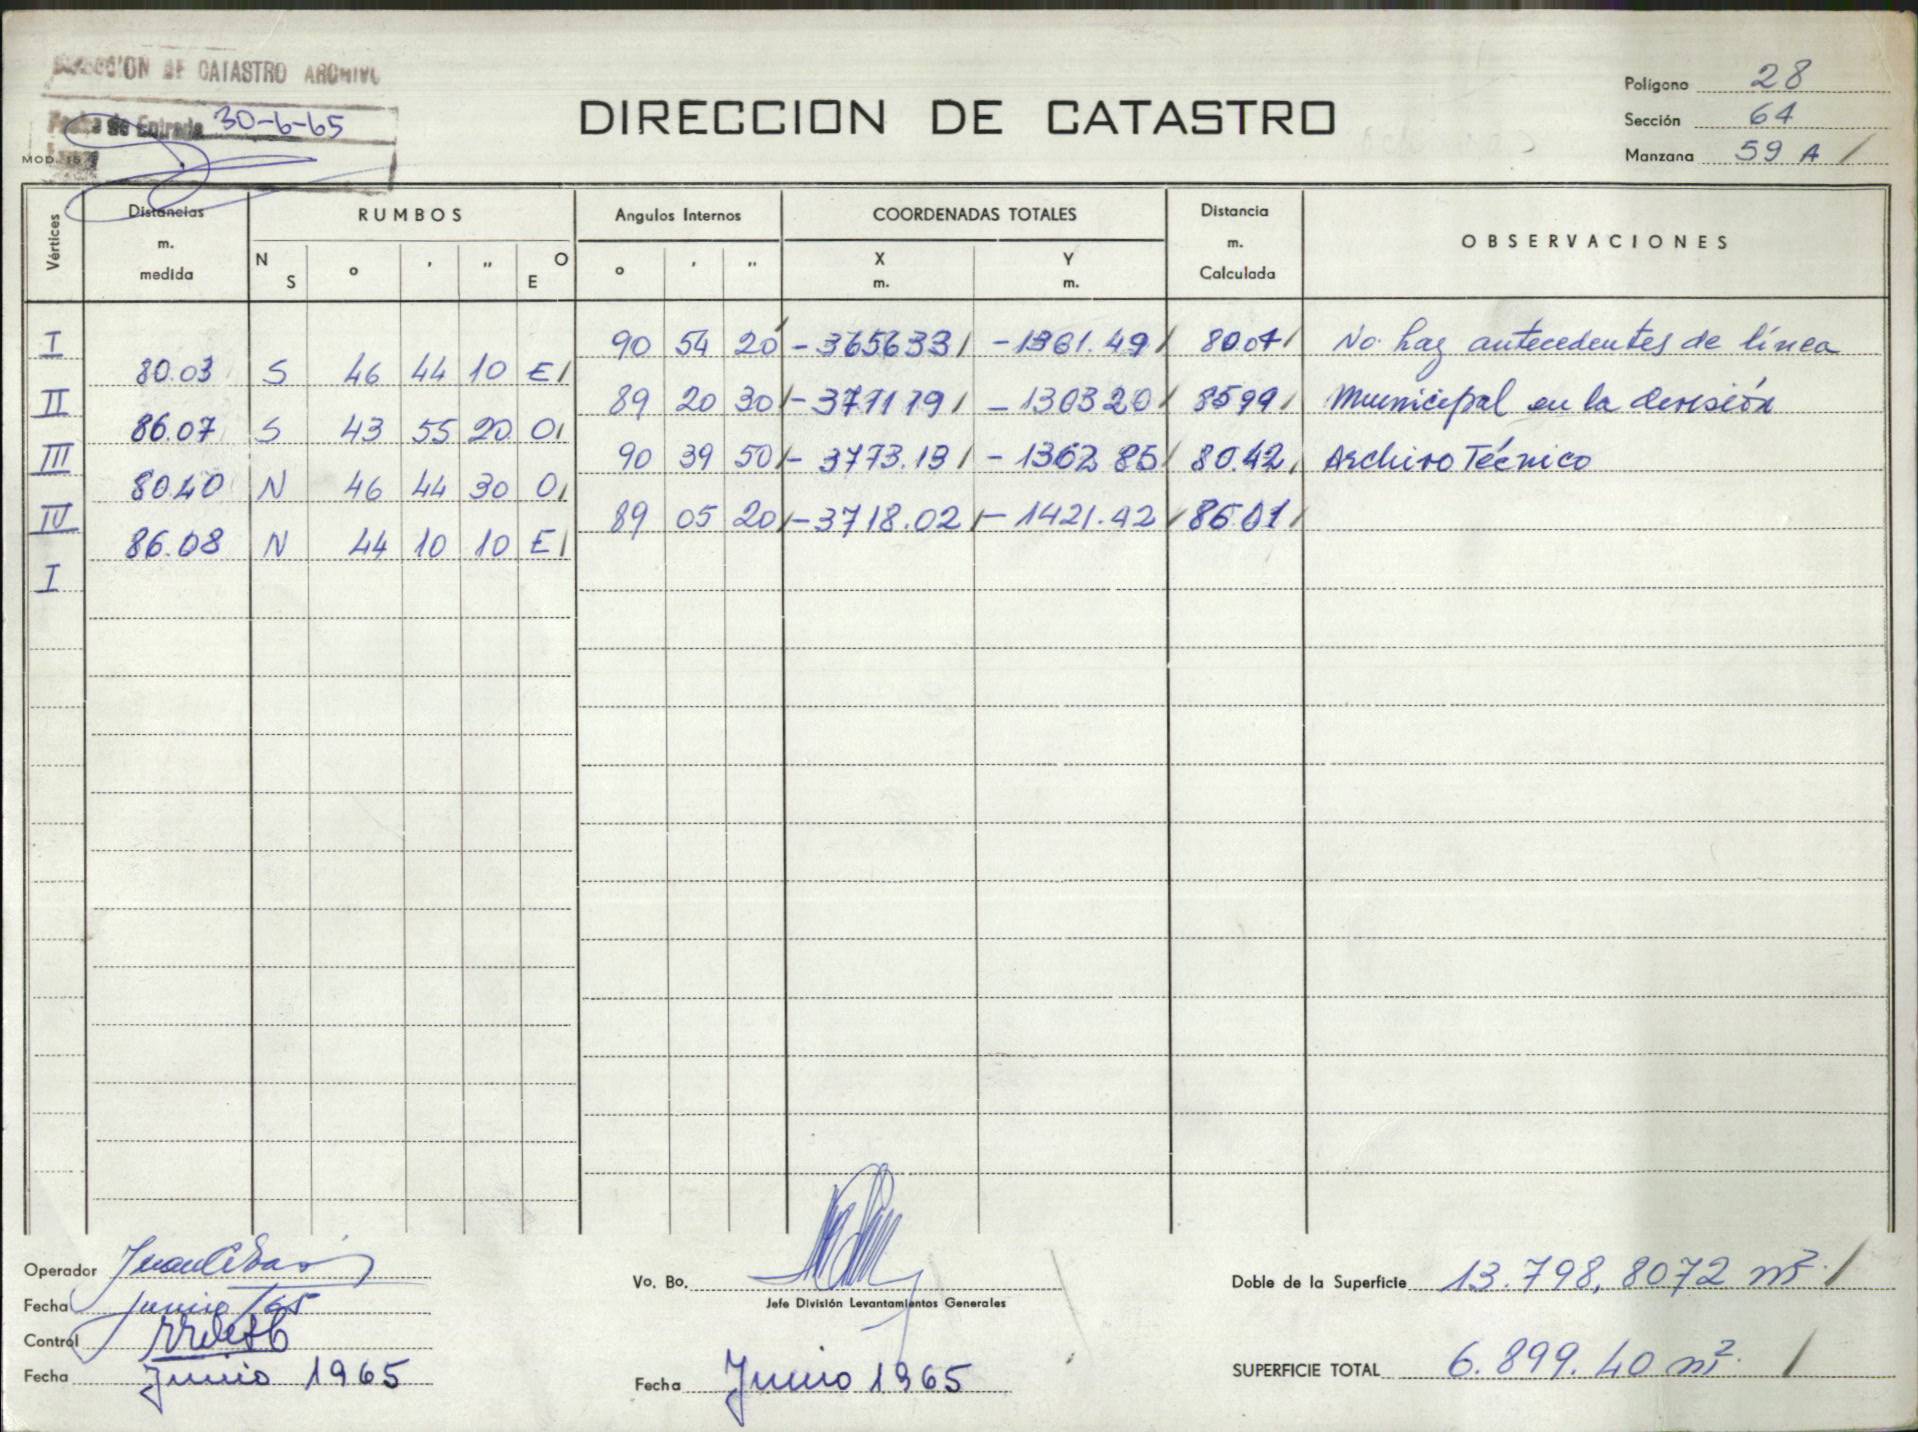 DIRECCION DE CATASTRO ARCHIVO
Fecha de Entrada 30-6-65
MOD. 15
DIRECCION DE CATASTRO
Polígono 28
Sección 64
Manzana 59 A /
Vértices Distancias m. medida RUMBOS N S o ' '' O E Angulos Internos o ' '' COORDENADAS TOTALES X m. Y m. Distancia m. Calculada OBSERVACIONES
I 90 54 20 -3656.33 / -1361.49 / 80.04 / No hay antecedentes de línea
80.03 S 46 44 10 E /
II 89 20 30 / -3711.19 / -1303.20 / 85.99 / Municipal en la división
86.07 S 43 55 20 O /
III 90 39 50 / -3773.13 / -1362.85 / 80.42 / Archivo Técnico
80.40 N 46 44 30 O /
IV 89 05 20 / -3718.02 / -1421.42 / 86.01 /
86.08 N 44 10 10 E /
I
Operador
Fecha Junio/65
Control
Fecha Junio 1965
Vo. Bo.
Jefe División Levantamientos Generales
Fecha Junio 1965
Doble de la Superficie 13.798,8072 m². /
SUPERFICIE TOTAL 6.899.40 m². /